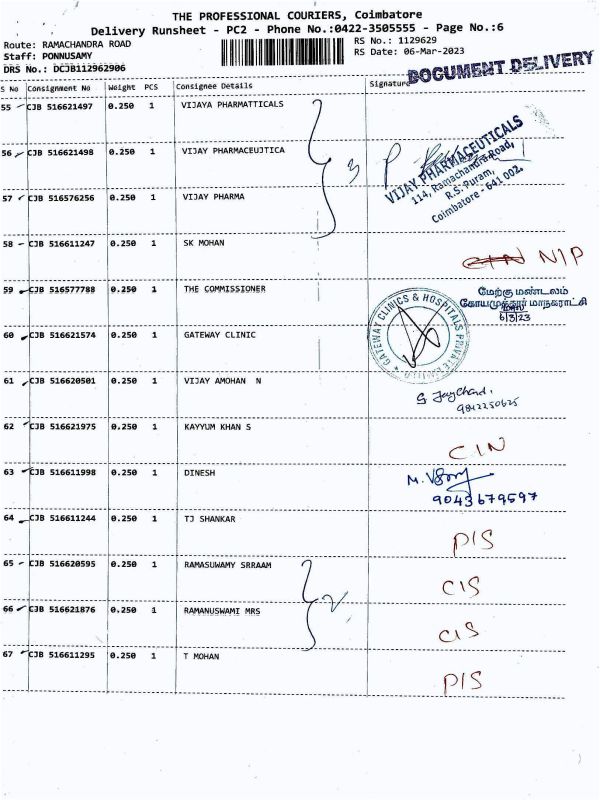 THE PROFESSIONAL COURIERS, Coimbatore
Delivery Runsheet - PC2 - Phone No.:0422-3505555 - Page No.:6
Route: RAMACHANDRA ROAD
RS No.: 1129629
Staff: PONNUSAMY
RS Date: 06-Mar-2023
DRS No.: DCJB112962906
DOCUMENT DELIVERY
S No Consignment No Weight PCS Consignee Details Signature
55 CJB 516621497 0.250 1 VIJAYA PHARMATTICALS
56 CJB 516621498 0.250 1 VIJAY PHARMACEUJTICA
3
VIJAY PHARMACEUTICALS
114, Ramachandra Road,
R.S. Puram,
Coimbatore - 641 002.
57 CJB 516576256 0.250 1 VIJAY PHARMA
58 CJB 516611247 0.250 1 SK MOHAN
CIN NIP
59 CJB 516577788 0.250 1 THE COMMISSIONER
மேற்கு மண்டலம்
கோயமுத்தூர் மாநகராட்சி
6/3/23
60 CJB 516621574 0.250 1 GATEWAY CLINIC
GATEWAY CLINICS & HOSPITALS PRIVATE LIMITED
61 CJB 516620501 0.250 1 VIJAY AMOHAN N
9842250625
62 CJB 516621975 0.250 1 KAYYUM KHAN S
CIN
63 CJB 516611998 0.250 1 DINESH
9043679597
64 CJB 516611244 0.250 1 TJ SHANKAR
PIS
65 CJB 516620595 0.250 1 RAMASUWAMY SRRAAM
CIS
2
66 CJB 516621876 0.250 1 RAMANUSWAMI MRS
CIS
67 CJB 516611295 0.250 1 T MOHAN
PIS